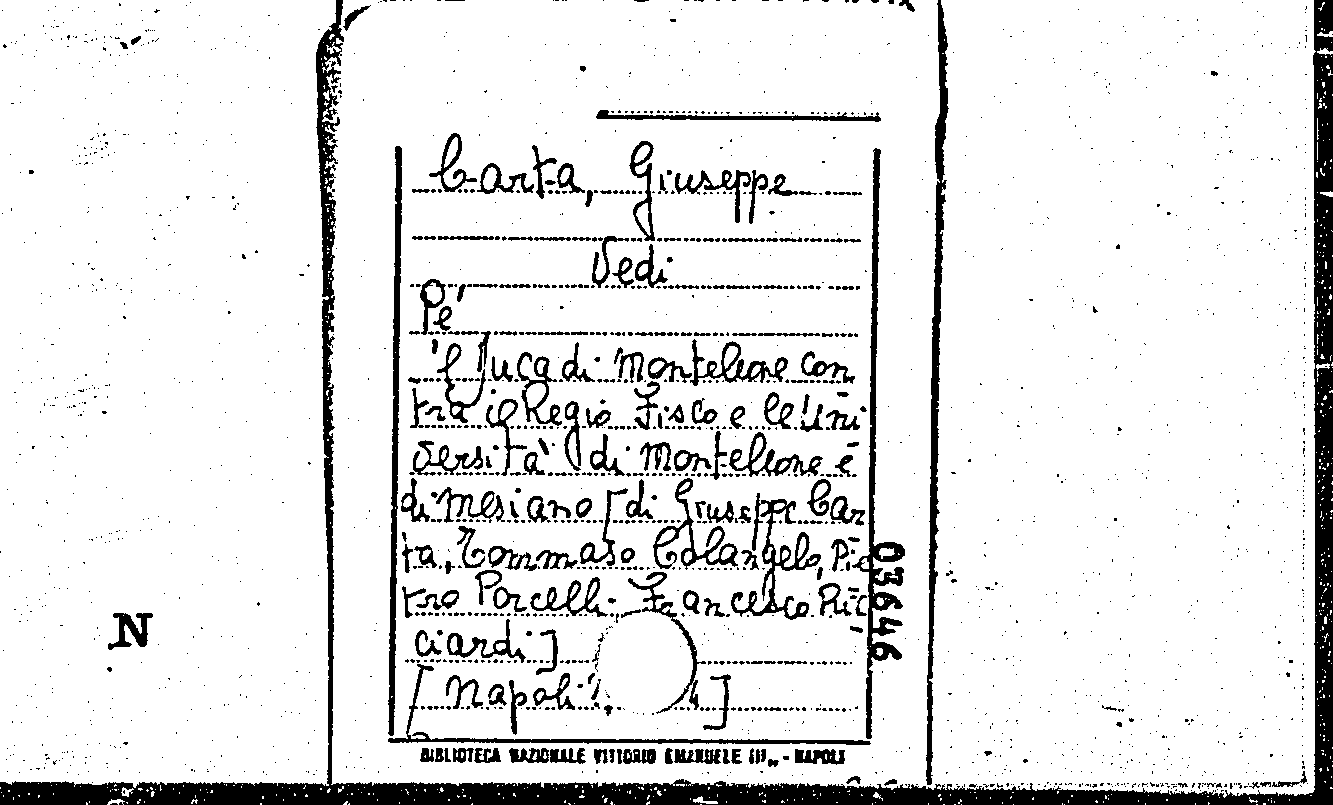 Carta, Giuseppe
Vedi
Pe'
'l Duca di Monteleone con
tra il Regio Fisco e le Uni
versità di Monteleone e
di Mesiano [di Giuseppe Car
ta, Tommaso Colangelo, Pie
tro Porcelli. Francesco Ric
ciardi]
[Napoli
03646
N
BIBLIOTECA NAZIONALE VITTORIO EMANUELE III,, - NAPOLI